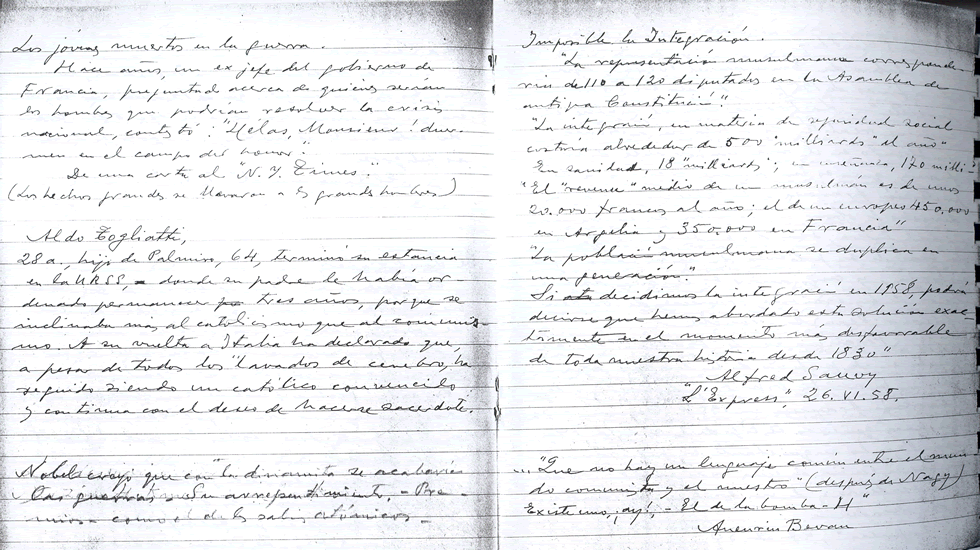 Los jóvenes muertos en la guerra.
Hace años, un ex jefe del gobierno de
Francia, preguntado acerca de quienes serían
los hombres que podrían resolver la crisis
nacional, contestó: "Hélas, Monsieur! duer-
men en el campo del honor."
De una carta al "N. Y. Times".
(Los hechos grandes se llevaron a los grandes hombres)
Aldo Togliatti,
28 a. hijo de Palmiro, 64, terminó su estancia
en la URSS, - donde su padre le había or
denado permanecer tres años, porque se
inclinaba más al catolicismo que al comunis-
mo. A su vuelta a Italia ha declarado que,
a pesar de todos los "lavados de cerebro, ha
seguido siendo un católico convencido
y continua con el deseo de hacerse sacerdote.
Nobel creyó que con la dinamita se acabarían
las guerras. Su arrepentimiento. - Pre-
mios - como el de los sabios atómicos. -
Imposible la Integración.
"La representación musulmana corresponde-
ría de 110 a 120 diputados en la Asamblea de
antigua Constitución".
"La integració, en materia de seguridad social
costaria alrededor de 500 "milliards" al año"
En sanidad, 18 "milliards"; en enseñanza, 120 milli-
"El "revenue" medio de un musulmán es de unos
20.000 francos al año; el de un europeo 450.000
en Argelia y 350.000 en Francia"
"La població musulmana se duplica en
una generación".
Si decidimos la integració en 1958, podrá
decirse que hemos abordado esta solución exac
tamente en el momento más desfavorable
de toda nuestra historia desde 1830"
Alfred Sauvy
"L'Express", 26. VI. 58.
... "Que no hay un lenguaje común entre el mun
do comunista y el nuestro" (después de Nagy)
Existe uno, ¡ay!, - El de la bomba - H"
Aneurin Bevan